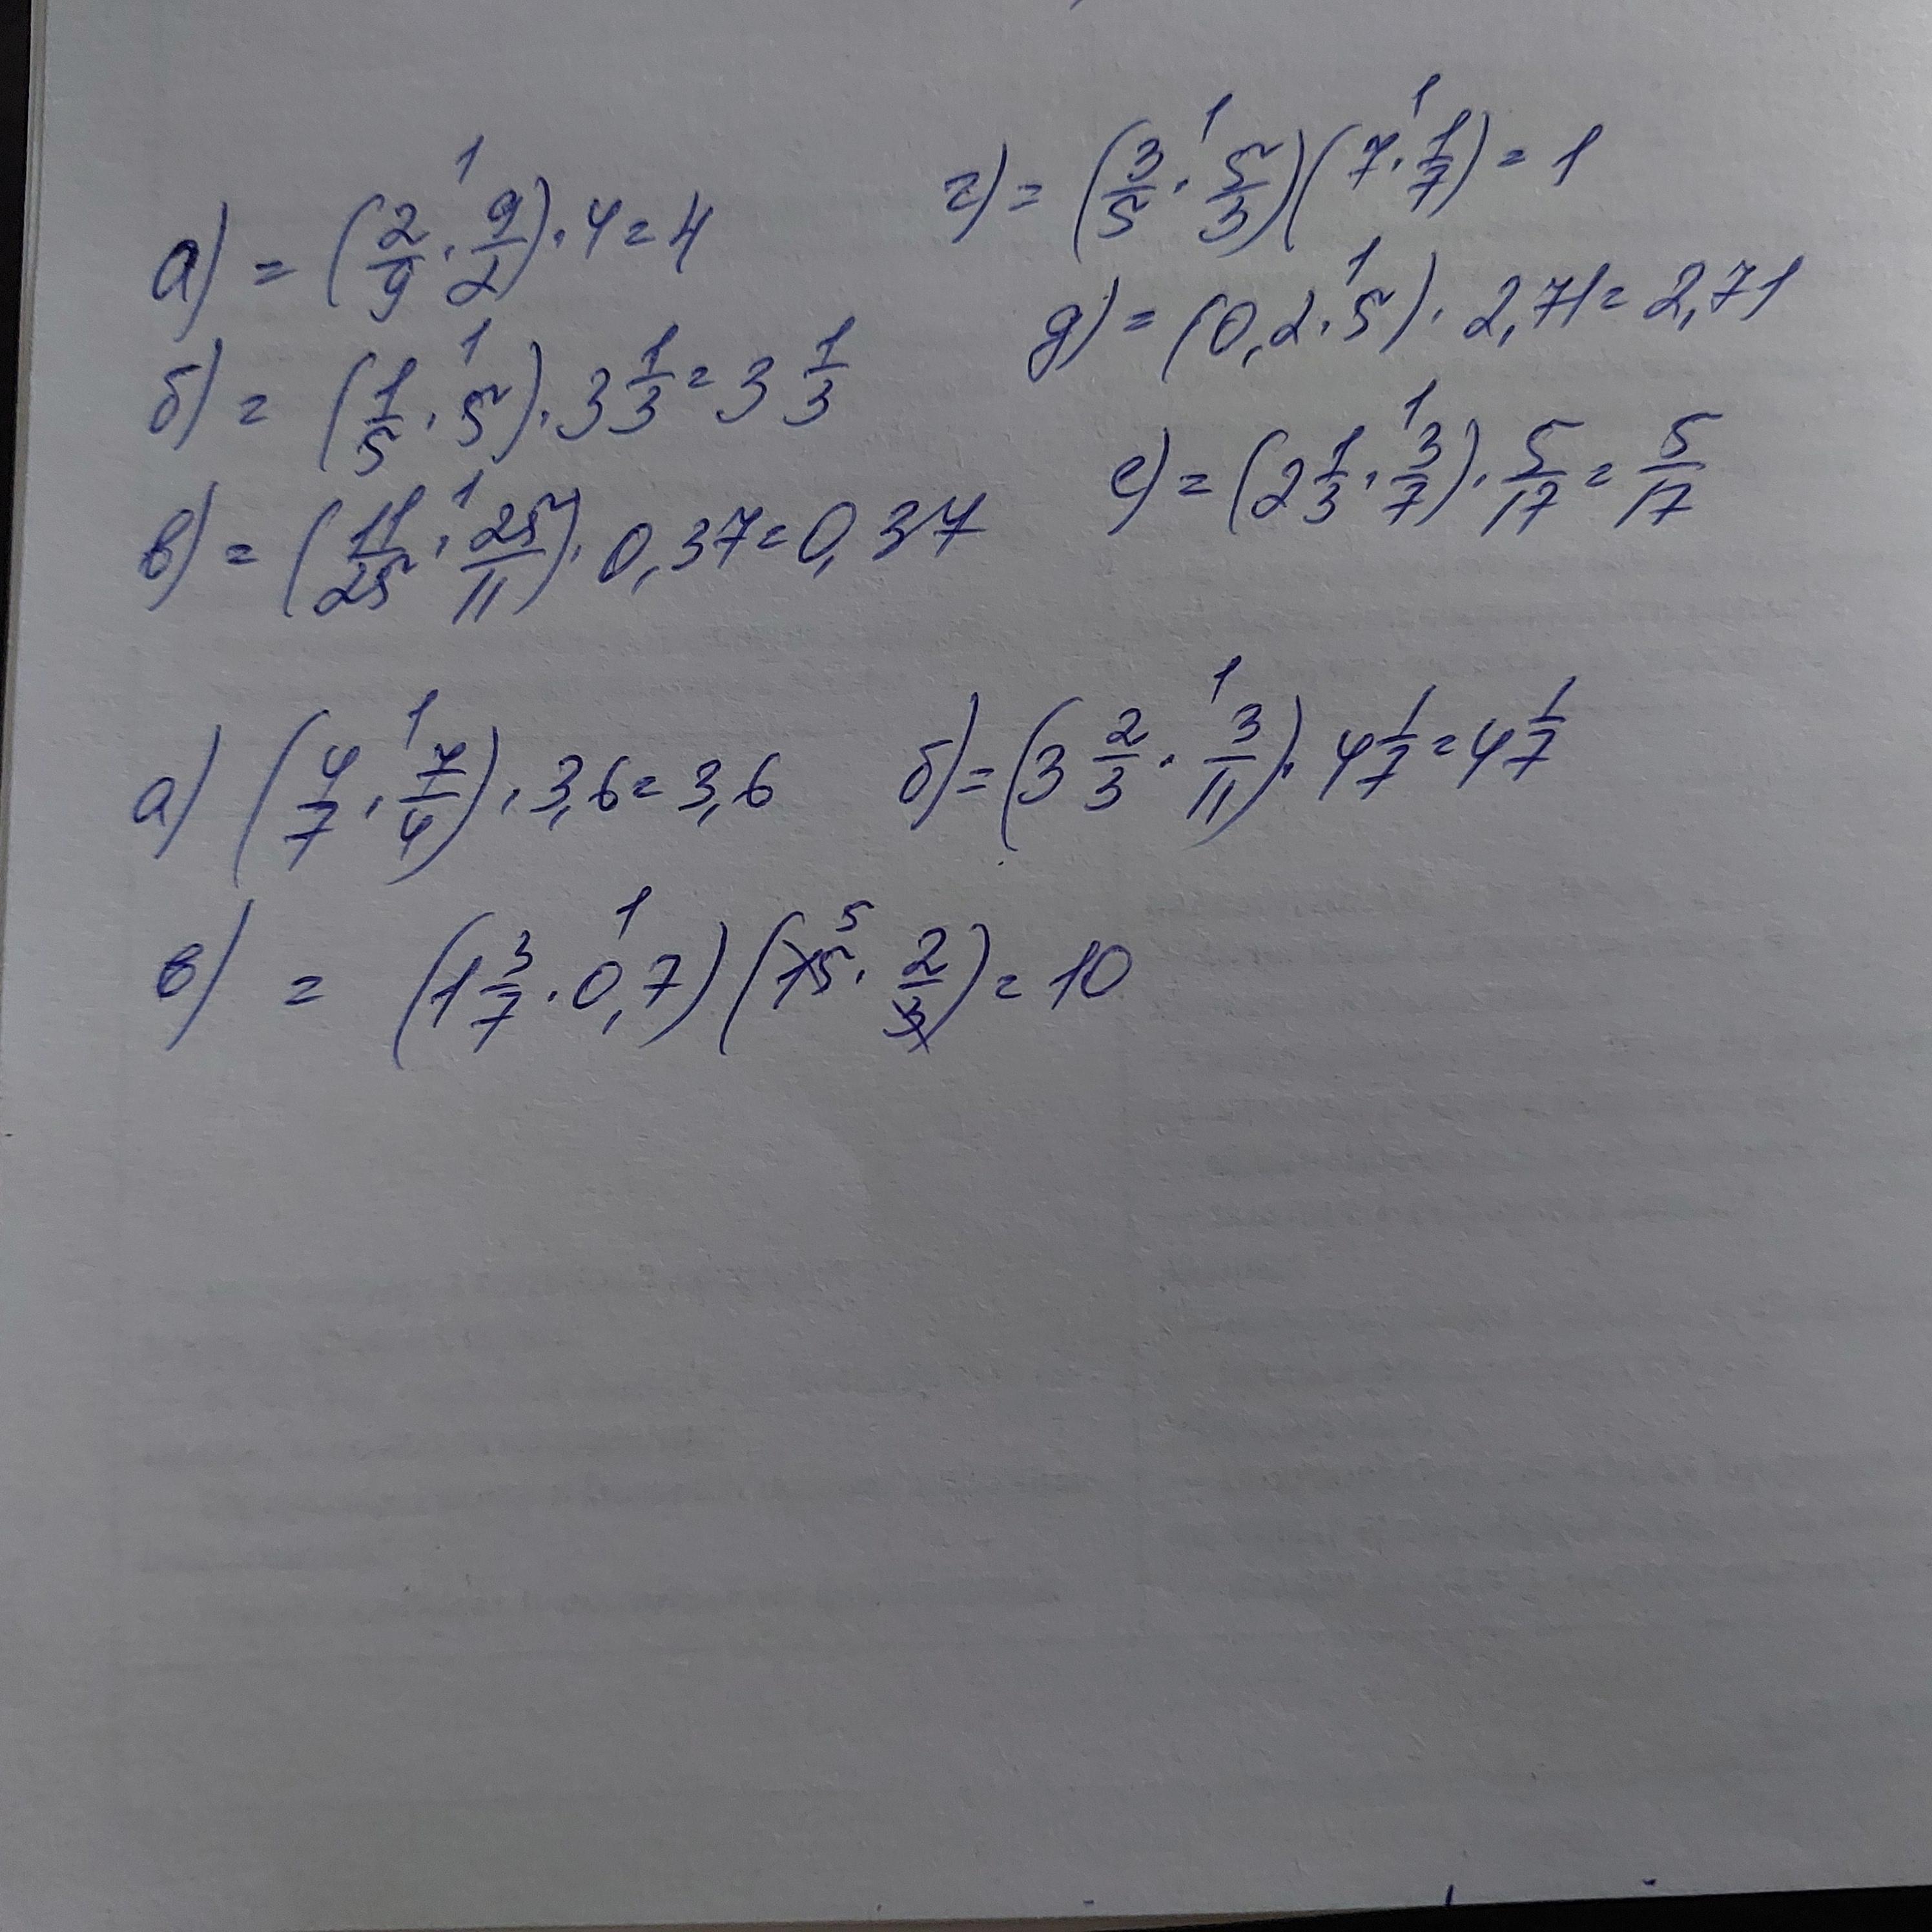 а) = (2/9 · 9/2)¹ · 4 = 4
б) = (1/5 · 5)¹ · 3 1/3 = 3 1/3
в) = (11/25 · 25/11)¹ · 0,37 = 0,37
г) = (3/5 · 5/3)¹ (7 · 1/7)¹ = 1
д) = (0,2 · 5)¹ · 2,71 = 2,71
е) = (2 1/3 · 3/7)¹ · 5/17 = 5/17
а) (4/7 · 7/4)¹ · 3,6 = 3,6
б) = (3 2/3 · 3/11)¹ · 4 1/7 = 4 1/7
в) = (1 3/7 · 0,7)¹ (15⁵ · 2/3) = 10